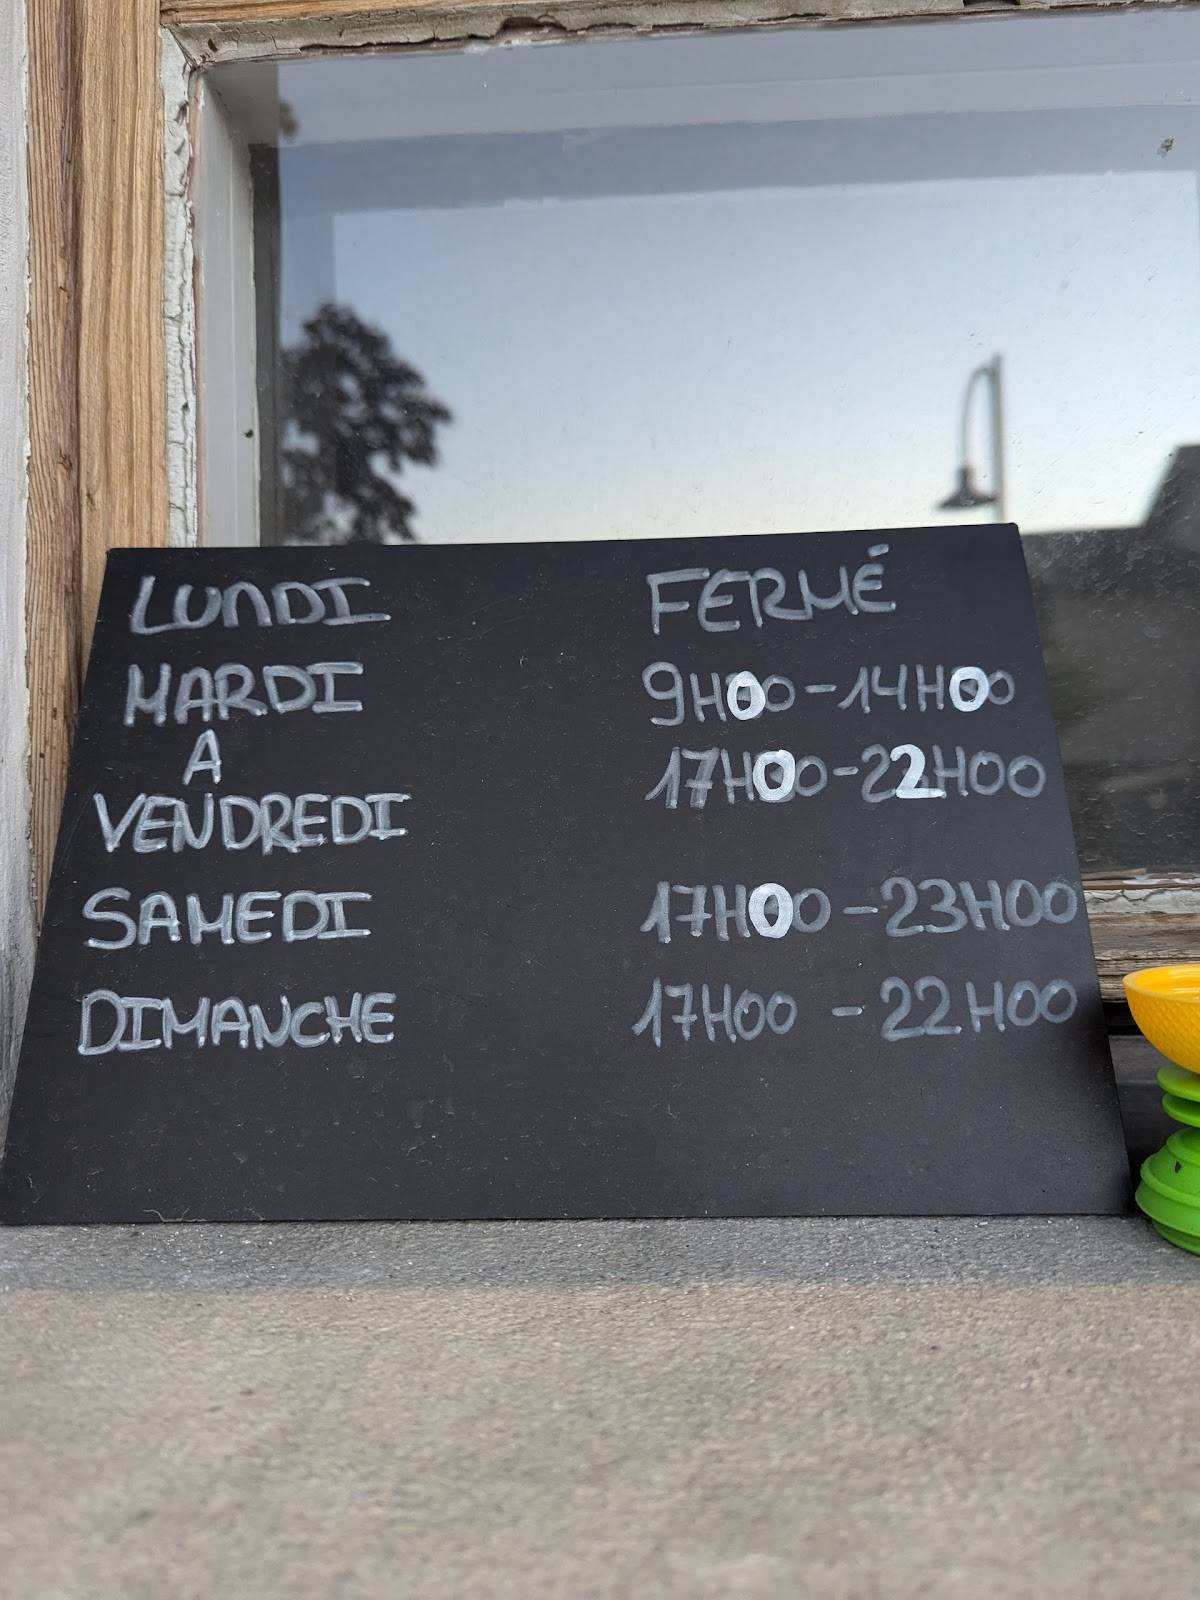 LUNDI FERMÉ
MARDI 9H00-14H00
A
17H00-22H00
VENDREDI
SAMEDI 17H00-23H00
DIMANCHE 17H00-22H00